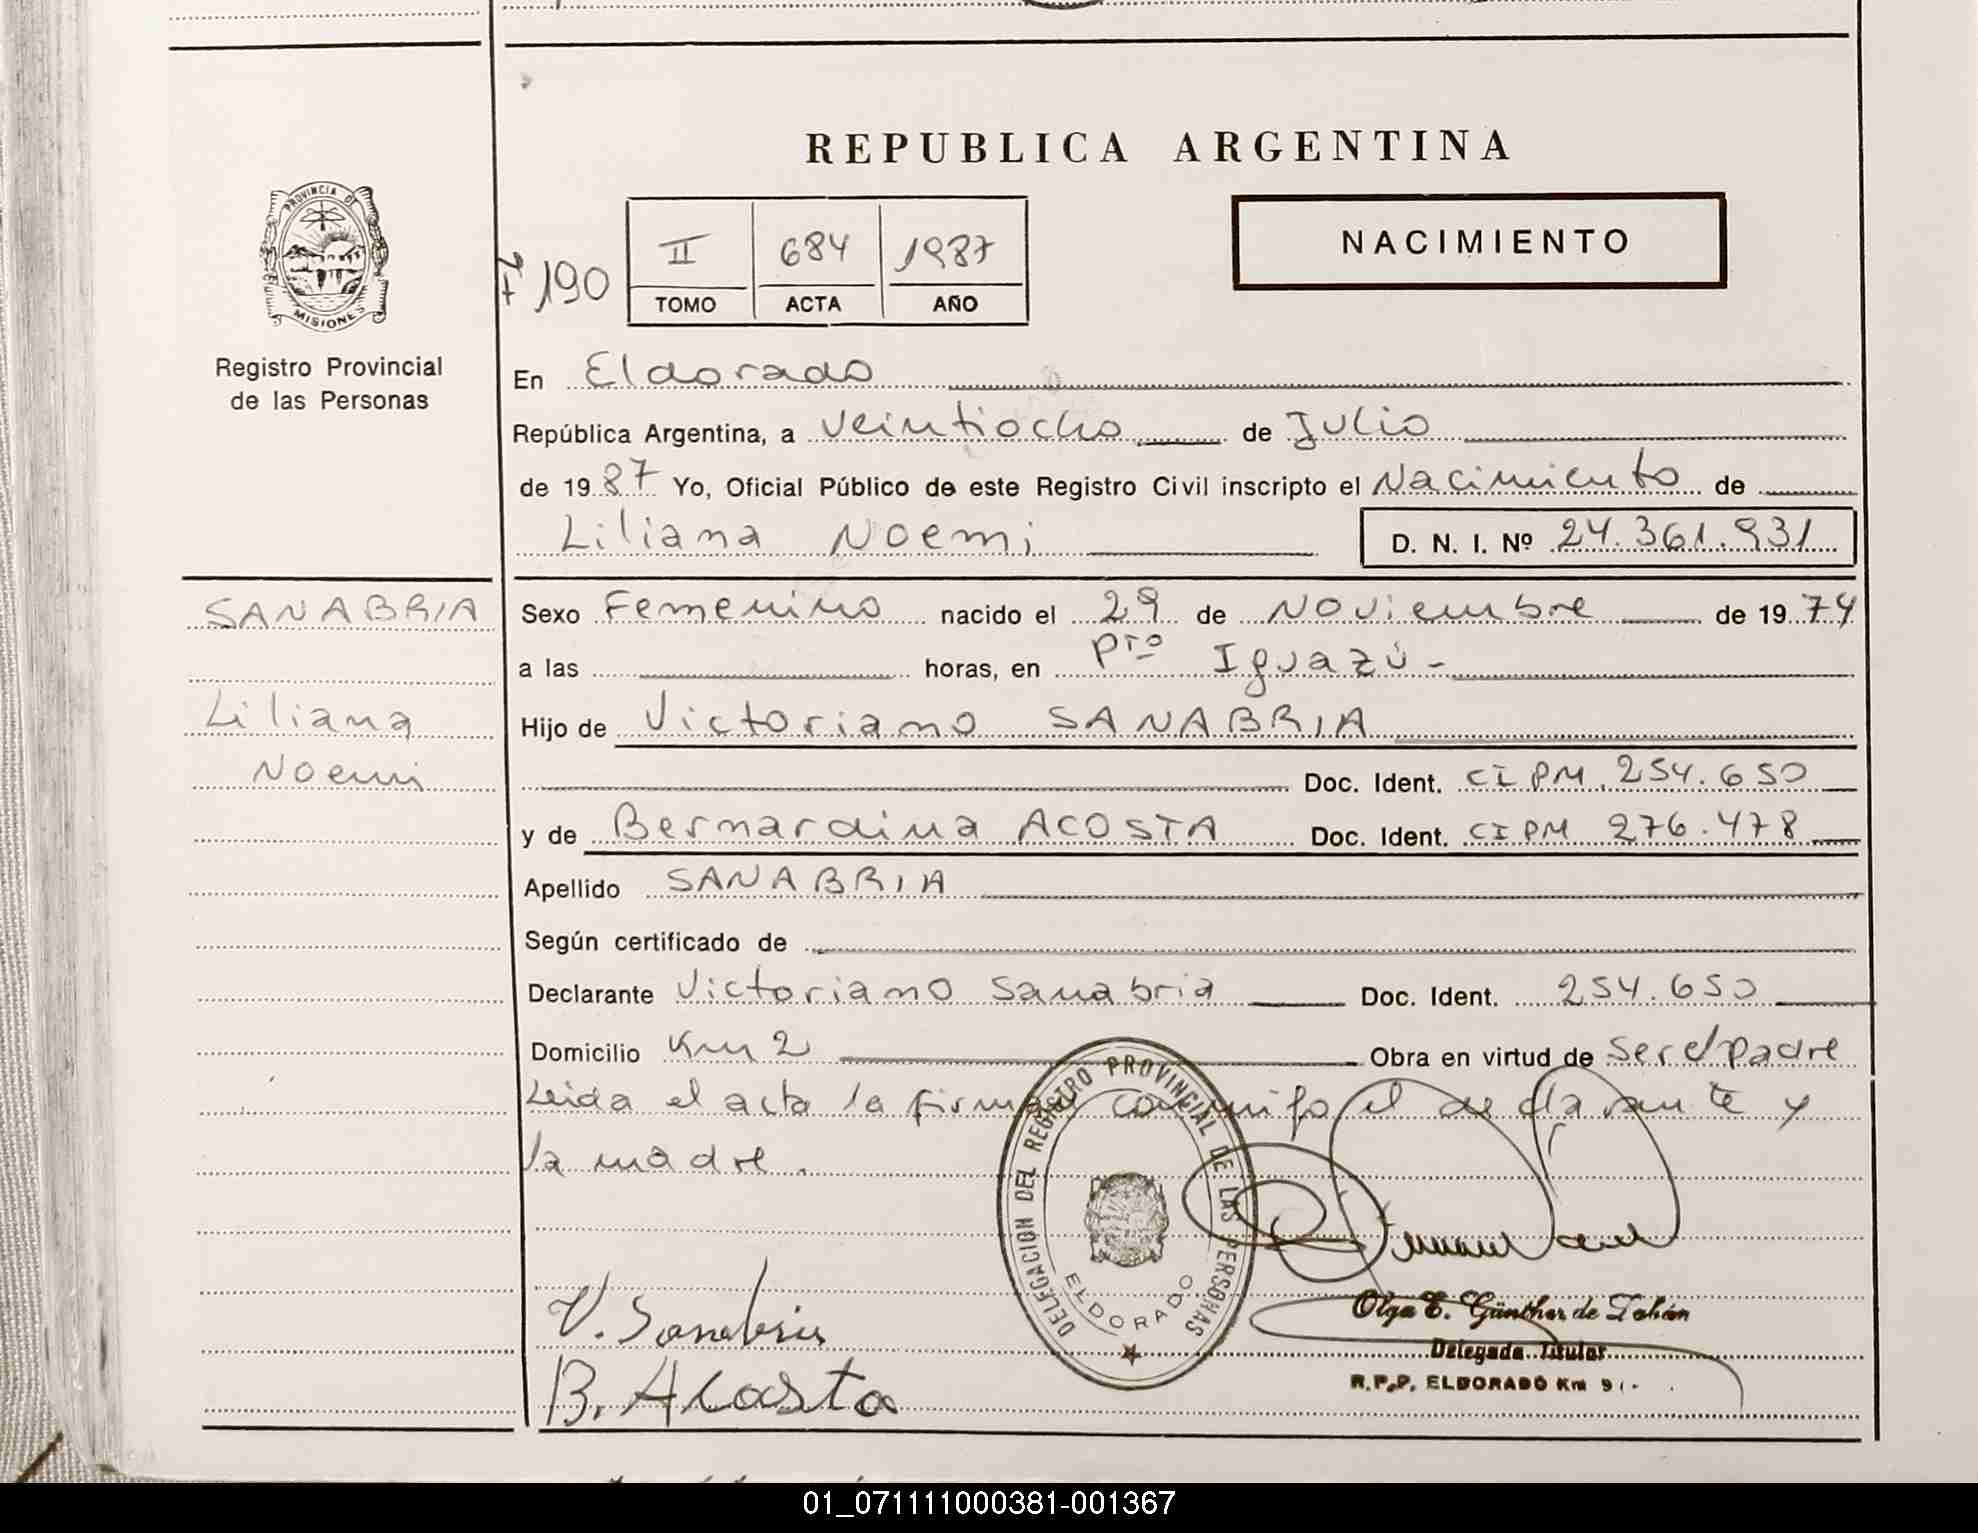 REPUBLICA ARGENTINA
PROVINCIA DE
MISIONES
Registro Provincial
de las Personas
Fº 190
II 684 1987
TOMO ACTA AÑO
NACIMIENTO
En Eldorado
República Argentina, a veintiocho de Julio
de 1987 Yo, Oficial Público de este Registro Civil inscripto el Nacimiento de
Liliana Noemi D. N. I. Nº 24.361.931
SANABRIA
Liliana
Noemi
Sexo Femenino nacido el 29 de Noviembre de 1974
a las horas, en Pto Iguazú -
Hijo de Victoriano SANABRIA
Doc. Ident. CI PM. 254.650
y de Bernardina ACOSTA Doc. Ident. CI PM 276.478
Apellido SANABRIA
Según certificado de
Declarante Victoriano Sanabria Doc. Ident. 254.650
Domicilio Km 2 Obra en virtud de Ser el padre
Leida el acta la firman conmigo el declarante y
la madre.
DELEGACION DEL REGISTRO PROVINCIAL DE LAS PERSONAS
ELDORADO
V. Sanabria
B. Acosta
Olga E. Günther de
Delegada Titular
R.P.P. ELDORADO Km 9
01_071111000381-001367